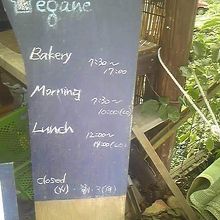 Légane
Bakery
7:30~
17:00
Morning
7:30~
10:00(LO)
Lunch
12:00~
14:00(LO)
closed
(火)・第1・3(月)